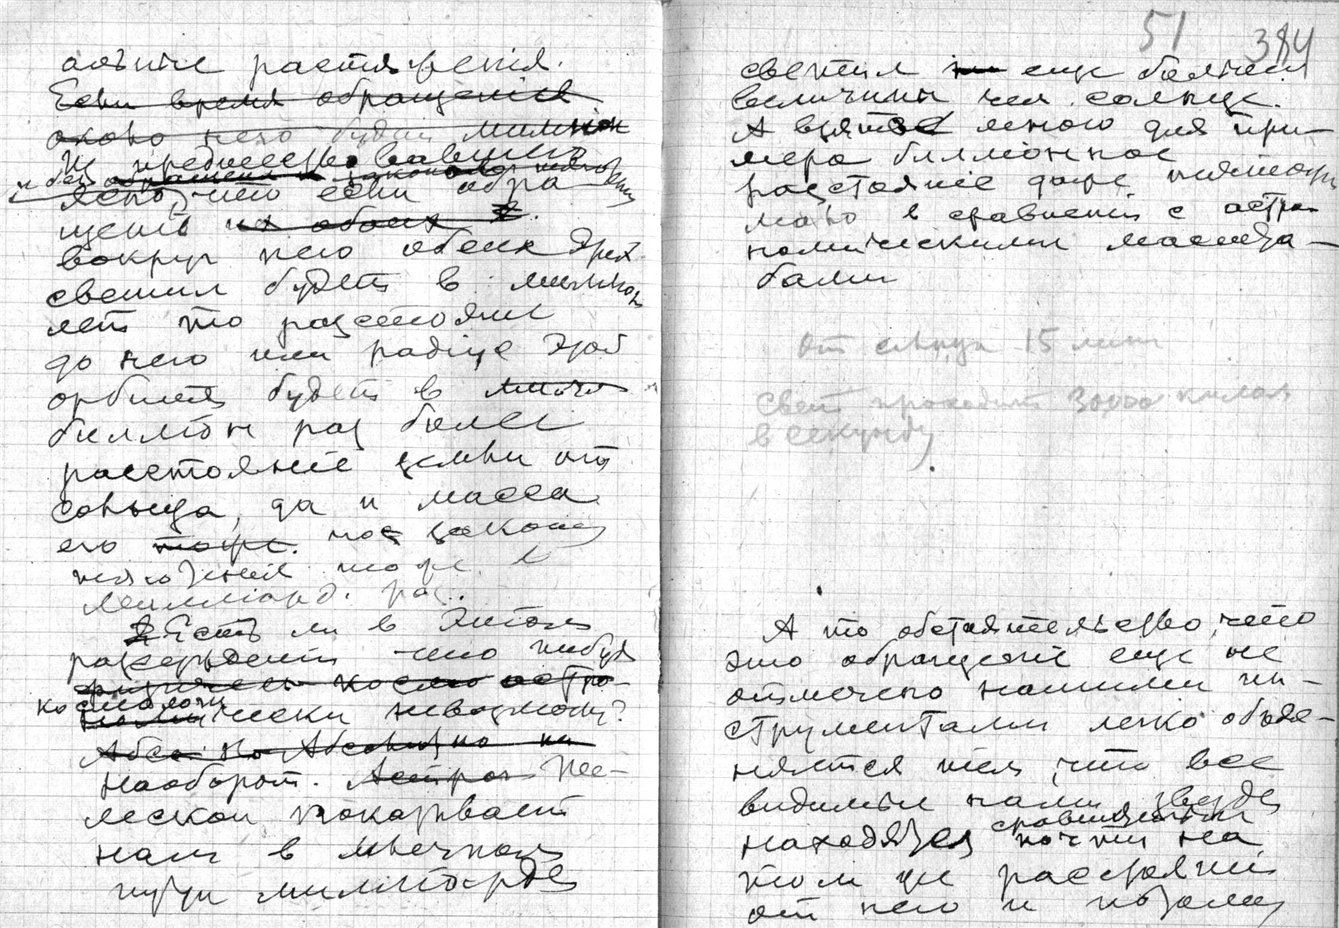 растяженія.
Если время обращенія
около него будет миллион
Из предшествовавшаго
ясно, что если обра
щеніе их обоих
вокруг него обеих
светил будет в миллион
лет то разстояніе
до него или радіус этой
орбиты будет в
биллион раз более
расстояніе земли от
солнца, да и масса
его тоже по закону
тяготения тоже в
миллиард. раз.
Есть ли в этом
разсужденіи что нибудь
космологически невозможн?
Наоборот. Те-
лескоп показывает
нам в млечном
пути миллиарды
51 384
светил еще большей
величины чем солнце.
А взятое мною для при-
мера биллионное
разстояніе даже
мало в сравненіи с астро
номическими масшта-
бами
От солнца 15 мин
Свет проходит 300000 килом
в секунду
А то обстоятельство, что
это обращеніе еще не
отмечено нашими ин-
струментами легко объяс-
няется тем, что все
видимыя нами звезды
находятся сравнительно
почти на
том же расстояніи
от него и потому